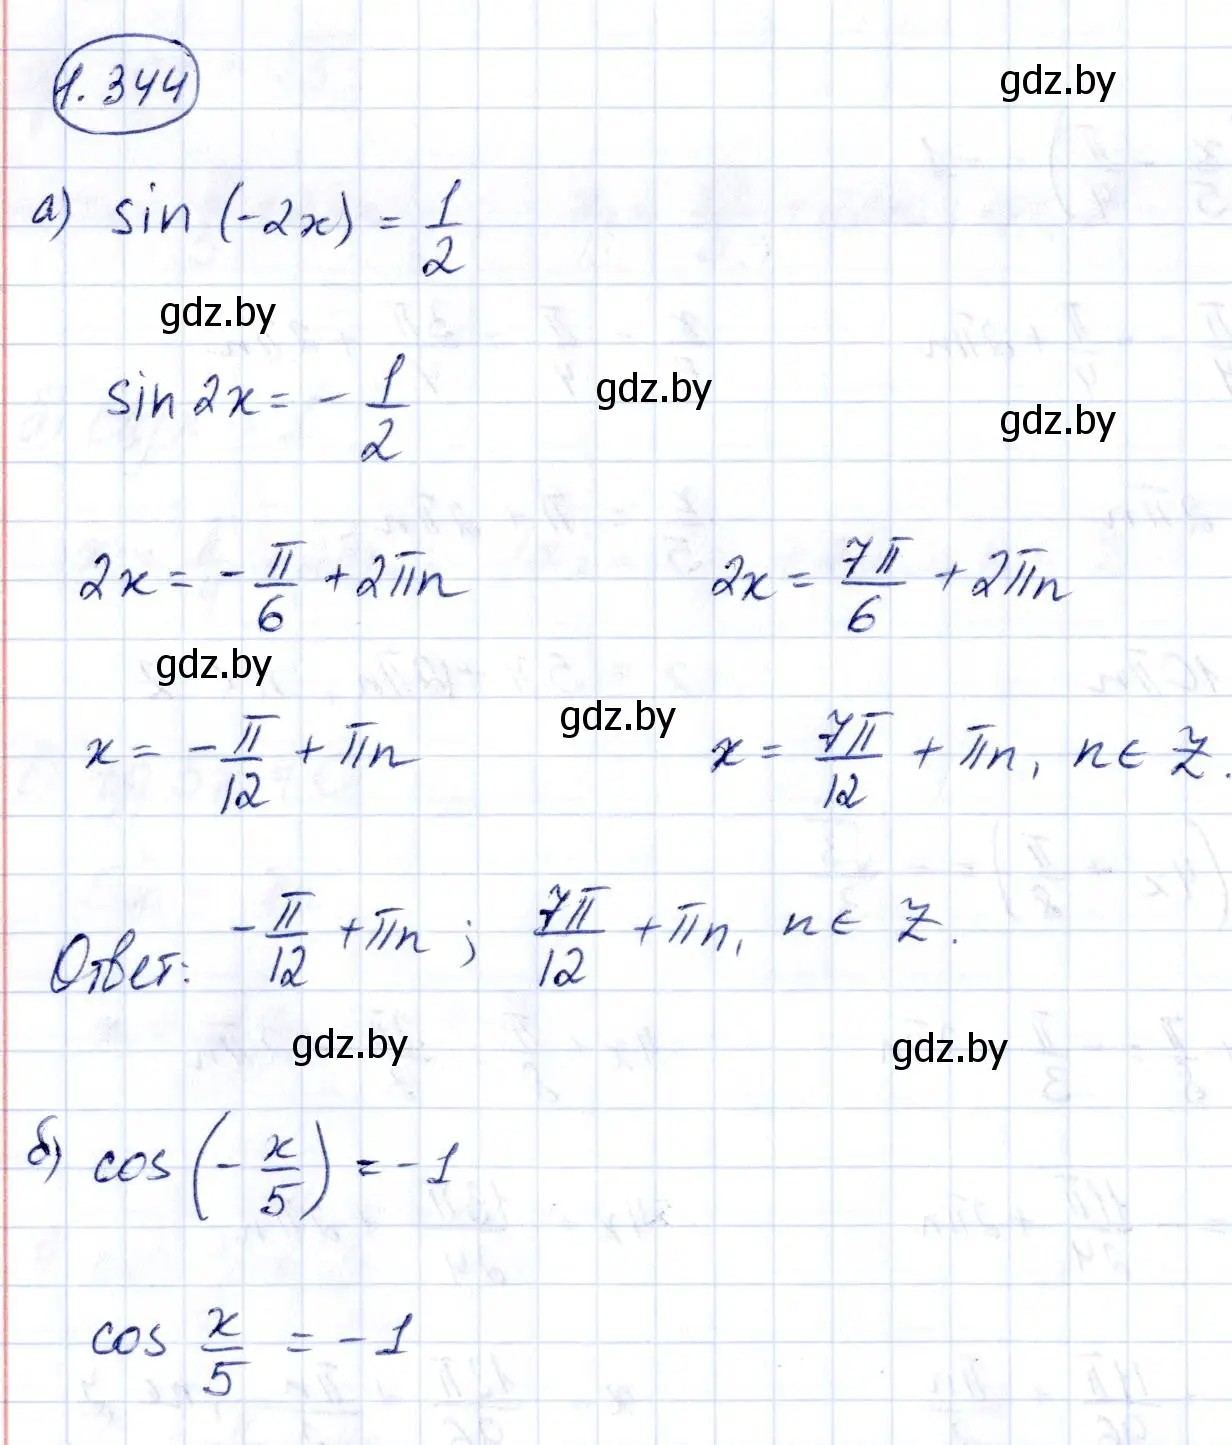 1.344
gdz.by
а) sin (-2x) = 1/2
gdz.by
sin 2x = - 1/2
gdz.by
gdz.by
2x = - π/6 + 2πn 2x = 7π/6 + 2πn
gdz.by
gdz.by
x = - π/12 + πn x = 7π/12 + πn, n ∈ Z.
Ответ: - π/12 + πn ; 7π/12 + πn, n ∈ Z.
gdz.by gdz.by
б) cos (- x/5) = -1
cos x/5 = -1